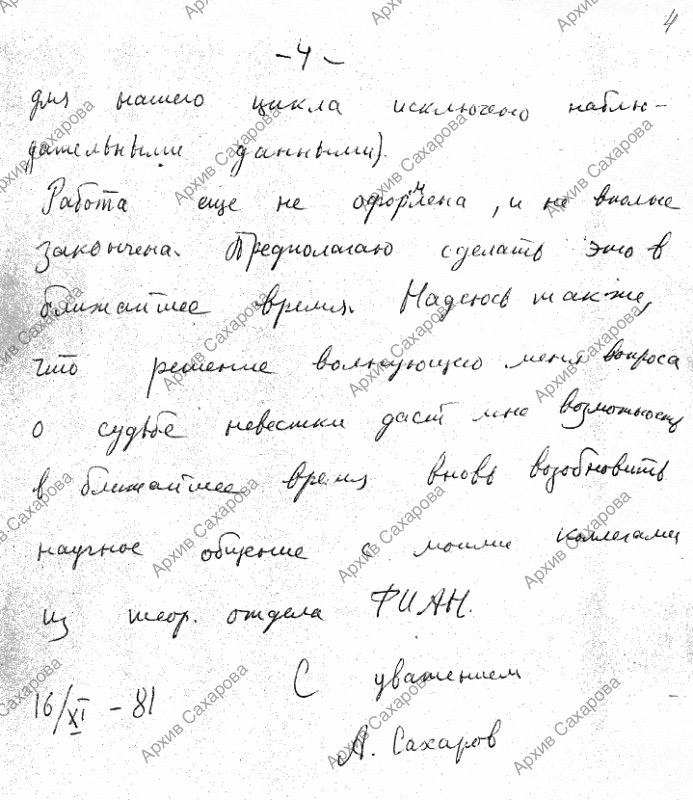 4
- 4 -
для нашего цикла исключено наблю-
дательными данными).
Работа еще не оформлена, и не вполне
закончена. Предполагаю сделать это в
ближайшее время. Надеюсь также,
что решение волнующего меня вопроса
о судьбе невестки даст мне возможность
в ближайшее время вновь возобновить
научное общение с моими коллегами
из теор. отдела ФИАН.
С уважением
16/XI - 81
А. Сахаров
Архив Сахарова